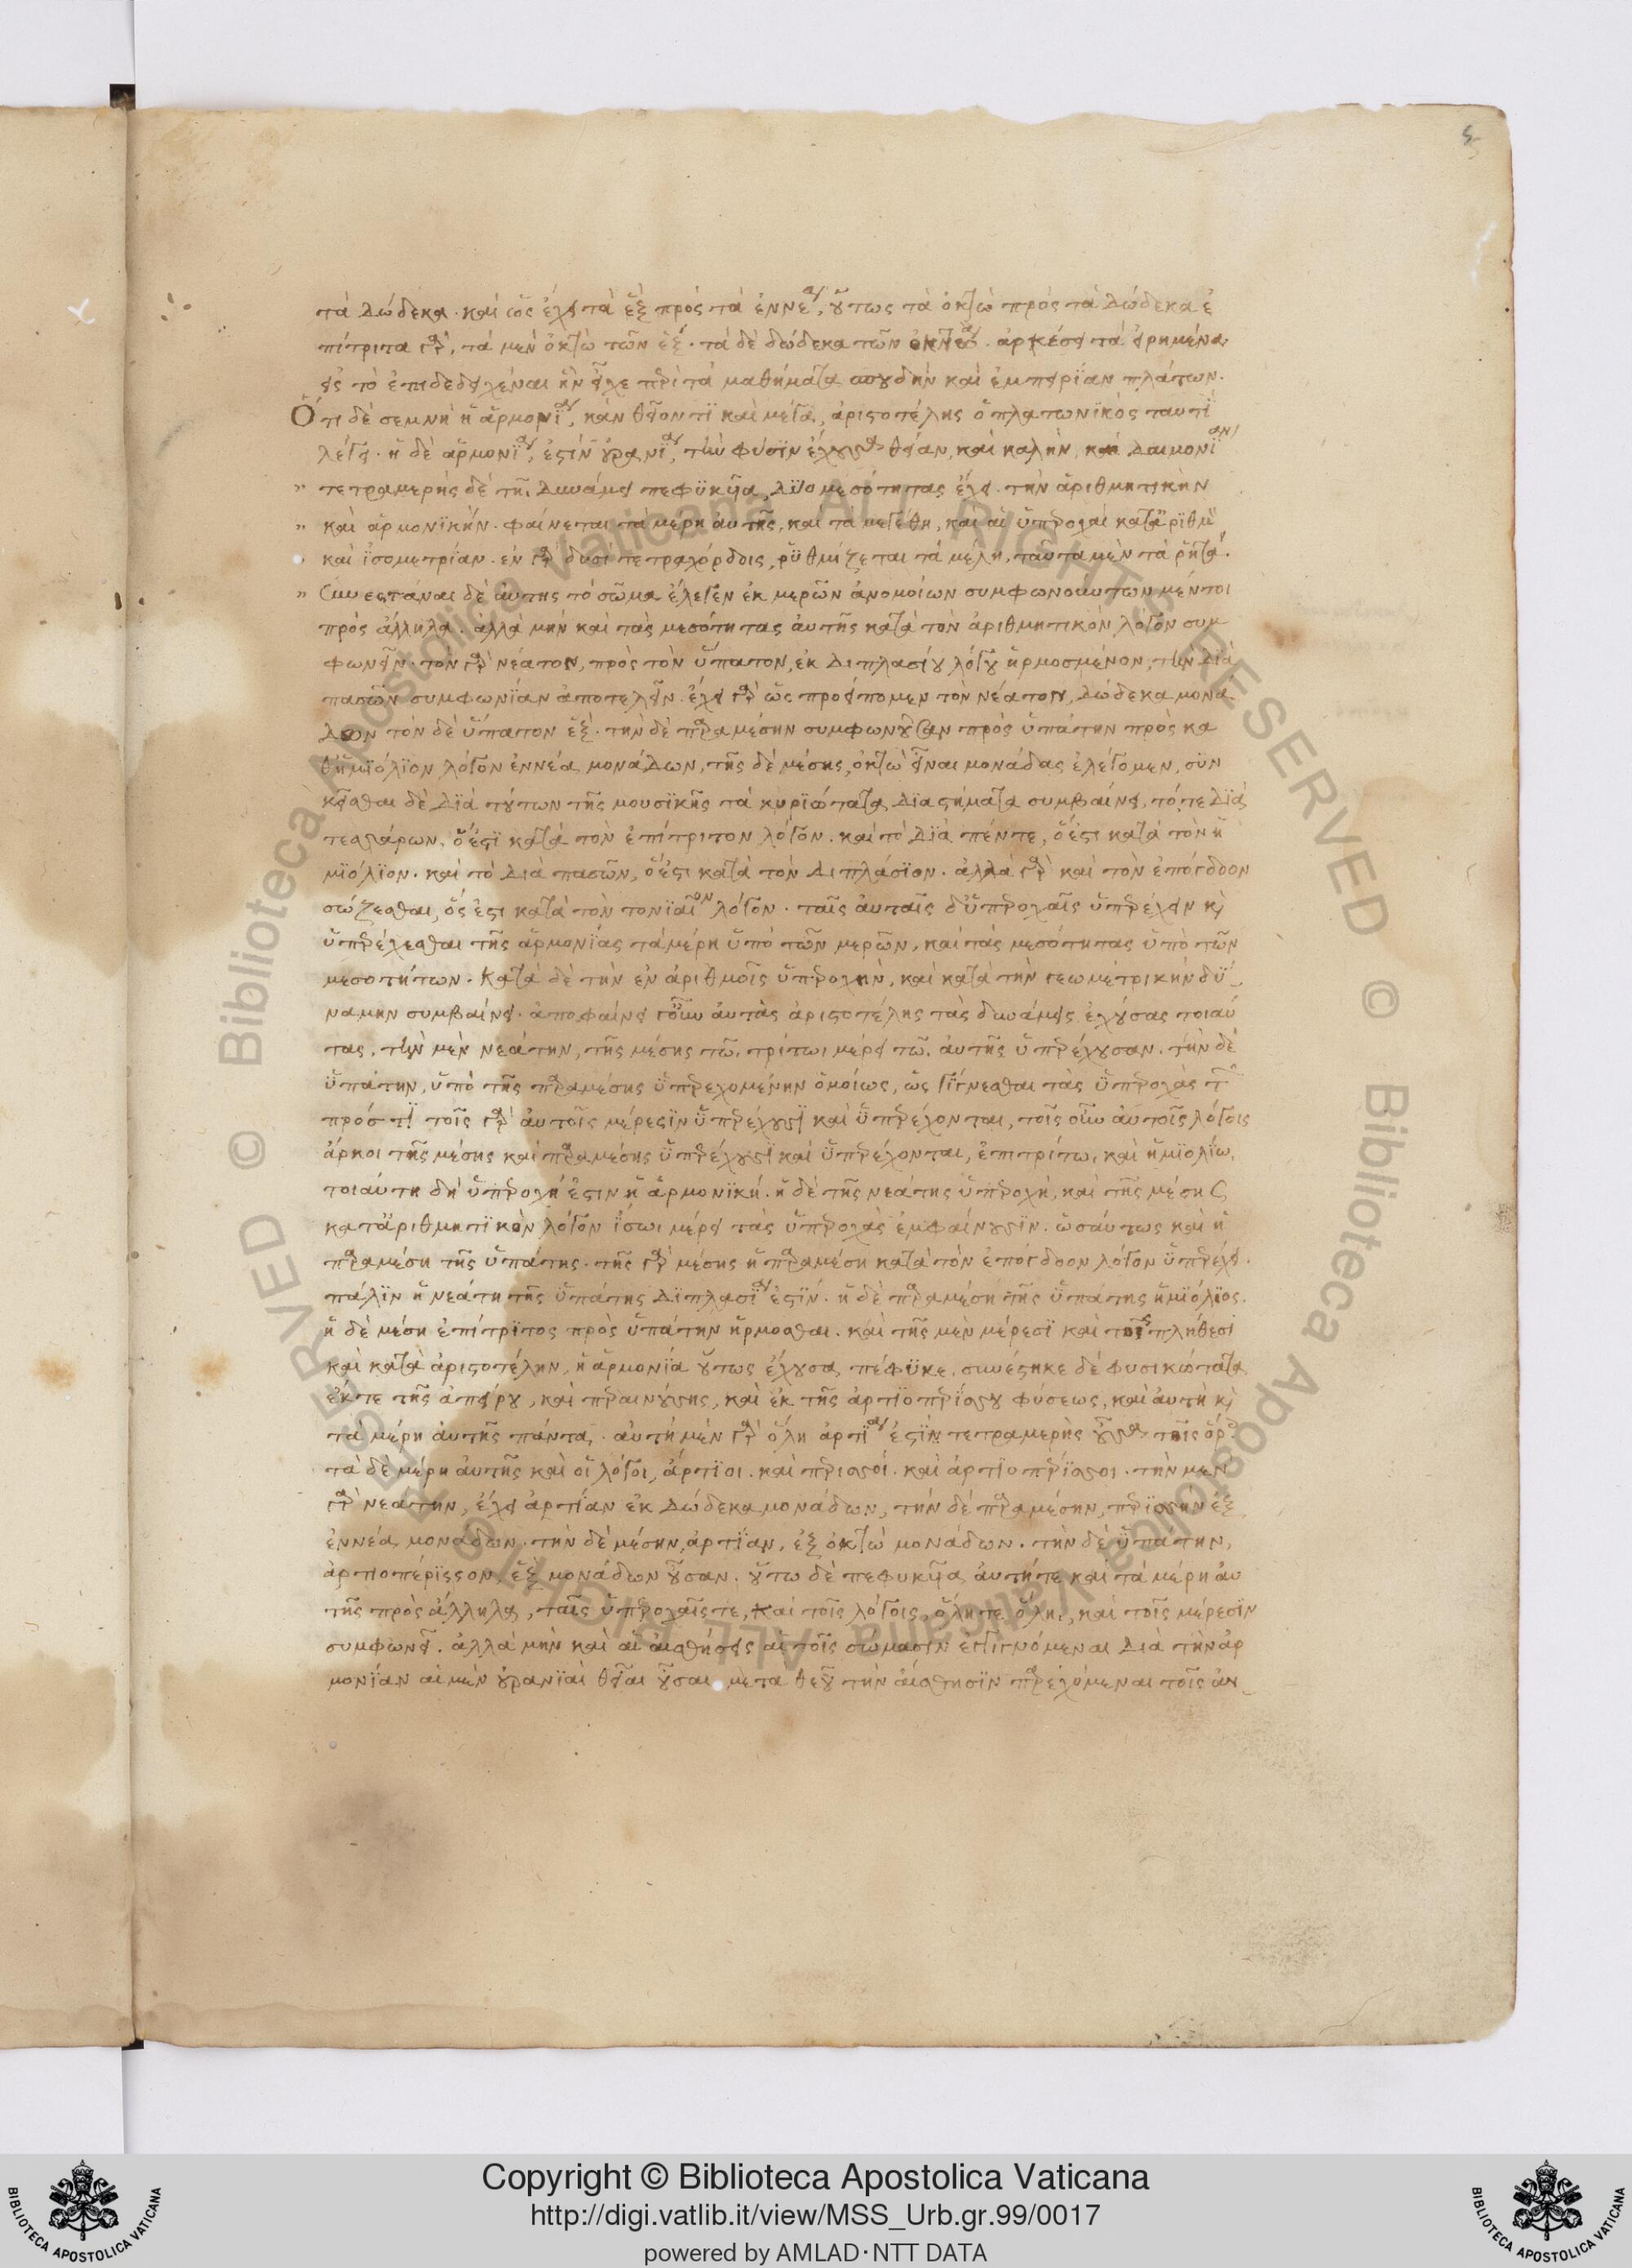 τὰ δώδεκα. καὶ ὡς ἔχει τὰ ἓξ πρὸς τὰ ἐννέα, οὕτως τὰ ὀκτὼ πρὸς τὰ δώδεκα ἐ
πίτριτα γὰρ, τὰ μὲν ὀκτὼ τῶν ἕξ. τὰ δὲ δώδεκα τῶν ἐννέα. ἀρκέσει τὰ εἰρημένα
εἰς τὸ ἐπιδεδειχέναι ἣν εἶχε περὶ τὰ μαθήματα σπουδὴν καὶ ἐμπειρίαν πλάτων.
Ὅτι δὲ σεμνὴ ἡ ἁρμονία, κἂν θεῖόν τι καὶ μέγα, ἀριστοτέλης ὁ πλατωνικὸς ταυτὶ
λέγει. ἡ δὲ ἁρμονία, ἐστὶν οὐρανία, τὴν φύσιν ἔχουσα θείαν, καὶ καλὴν, καὶ δαιμονίαν
τετραμερὴς δὲ τῆι δυνάμει πεφυκυῖα, δύο μεσότητας ἔχει. τὴν ἀριθμητικὴν
καὶ ἁρμονικήν. φαίνεται τὰ μέρη αὐτῆς, καὶ τὰ μεγέθη, καὶ αἱ ὑπεροχαὶ κατ' ἀριθμὸν
καὶ ἰσομετρίαν. ἐν γὰρ δυσὶ τετραχόρδοις, ῥυθμίζεται τὰ μέλη. ταῦτα μὲν τὰ ῥητά.
Συνεστάναι δὲ αὐτῆς τὸ σῶμα ἔλεγεν ἐκ μερῶν ἀνομοίων συμφωνούντων μέντοι
πρὸς ἄλληλα. ἀλλὰ μὴν καὶ τὰς μεσότητας αὐτῆς κατὰ τὸν ἀριθμητικὸν λόγον συμ
φωνεῖν. τὸν γὰρ νέατον, πρὸς τὸν ὕπατον, ἐκ διπλασίου λόγου ἡρμοσμένον, τὴν διὰ
πασῶν συμφωνίαν ἀποτελεῖν. ἔχει γὰρ ὡς προείπομεν τὸν νέατον, δώδεκα μονά
δων τὸν δὲ ὕπατον ἕξ. τὴν δὲ παραμέσην συμφωνοῦσαν πρὸς ὑπάτην πρὸς κα
θ' ἡμιόλιον λόγον ἐννέα μονάδων, τῆς δὲ μέσης, ὀκτὼ εἶναι μονάδας ἐλέγομεν, συν
κεῖσθαι δὲ διὰ τούτων τῆς μουσικῆς τὰ κυριώτατα διαστήματα συμβαίνει, τό τε διὰ
τεσσάρων, ὅ ἐστι κατὰ τὸν ἐπίτριτον λόγον. καὶ τὸ διὰ πέντε, ὅ ἐστι κατὰ τὸν ἡ
μιόλιον. καὶ τὸ διὰ πασῶν, ὅ ἐστι κατὰ τὸν διπλάσιον. ἀλλὰ γὰρ καὶ τὸν ἐπόγδοον
σώζεσθαι, ὅς ἐστι κατὰ τὸν τονιαῖον λόγον. ταῖς αὐταῖς δ' ὑπεροχαῖς ὑπερέχειν καὶ
ὑπερέχεσθαι τῆς ἁρμονίας τὰ μέρη ὑπὸ τῶν μερῶν, καὶ τὰς μεσότητας ὑπὸ τῶν
μεσοτήτων. Κατὰ δὲ τὴν ἐν ἀριθμοῖς ὑπεροχὴν, καὶ κατὰ τὴν γεωμετρικὴν δύ
ναμιν συμβαίνει. ἀποφαίνει γοῦν αὐτὰς ἀριστοτέλης τὰς δυνάμεις ἐχούσας τοιαύ
τας. τὴν μὲν νεάτην, τῆς μέσης τῶι τρίτωι μέρει τῶι αὐτῆς ὑπερέχουσαν. τὴν δὲ
ὑπάτην, ὑπὸ τῆς παραμέσης ὑπερεχομένην ὁμοίως, ὡς γίγνεσθαι τὰς ὑπεροχὰς τῶν
πρός τι τοῖς γὰρ αὐτοῖς μέρεσιν ὑπερέχουσι καὶ ὑπερέχονται, τοῖς οὖν αὐτοῖς λόγοις
ἄκροι τῆς μέσης καὶ παραμέσης ὑπερέχουσι καὶ ὑπερέχονται, ἐπιτρίτωι καὶ ἡμιολίωι
τοιαύτη δὴ ὑπεροχή ἐστιν ἡ ἁρμονική. ἡ δὲ τῆς νεάτης ὑπεροχὴ, καὶ τῆς μέσης
κατ' ἀριθμητικὸν λόγον ἴσωι μέρει τὰς ὑπεροχὰς ἐμφαίνουσιν. ὡσαύτως καὶ ἡ
παραμέση τῆς ὑπάτης. τῆς γὰρ μέσης ἡ παραμέση κατὰ τὸν ἐπόγδοον λόγον ὑπερέχει.
πάλιν ἡ νεάτη τῆς ὑπάτης διπλασία ἐστίν. ἡ δὲ παραμέση τῆς ὑπάτης ἡμιόλιος.
ἡ δὲ μέση ἐπίτριτος πρὸς ὑπάτην ἥρμοσθαι. καὶ τῆς μὲν μέρεσι καὶ τοῖς πλήθεσι
καὶ κατὰ ἀριστοτέλην, ἡ ἁρμονία οὕτως ἔχουσα πέφυκε. συνέστηκε δὲ φυσικώτατα
ἔκ τε τῆς ἀπείρου, καὶ περαινούσης, καὶ ἐκ τῆς ἀρτιοπερίσσου φύσεως, καὶ αὐτὴ καὶ
τὰ μέρη αὐτῆς πάντα. αὐτὴ μὲν γὰρ ὅλη ἀρτία ἐστὶν τετραμερὴς οὖσα τοῖς ὅροις
τὰ δὲ μέρη αὐτῆς καὶ οἱ λόγοι, ἄρτιοι. καὶ περισσοί. καὶ ἀρτιοπέρισσοι. τὴν μὲν
γὰρ νεάτην, ἔχει ἀρτίαν ἐκ δώδεκα μονάδων, τὴν δὲ παραμέσην, περισσὴν ἐξ
ἐννέα μονάδων. τὴν δὲ μέσην, ἀρτίαν, ἐξ ὀκτὼ μονάδων. τὴν δὲ ὑπάτην,
ἀρτιοπέρισσον, ἓξ μονάδων οὖσαν. οὕτω δὲ πεφυκυῖα αὐτή τε καὶ τὰ μέρη αὐ
τῆς πρὸς ἄλληλα, ταῖς ὑπεροχαῖς τε, καὶ τοῖς λόγοις, ὅλη τε ὅληι, καὶ τοῖς μέρεσιν
συμφωνεῖ. ἀλλὰ μὴν καὶ αἱ αἰσθήσεις αἱ τοῖς σώμασιν ἐγγιγνόμεναι διὰ τὴν ἁρ
μονίαν αἱ μὲν οὐράνιαι θεῖαι οὖσαι μετὰ θεοῦ τὴν αἴσθησιν παρεχόμεναι τοῖς ἀν
Copyright © Biblioteca Apostolica Vaticana
http://digi.vatlib.it/view/MSS_Urb.gr.99/0017
powered by AMLAD·NTT DATA
BIBLIOTECA APOSTOLICA VATICANA
BIBLIOTECA APOSTOLICA VATICANA